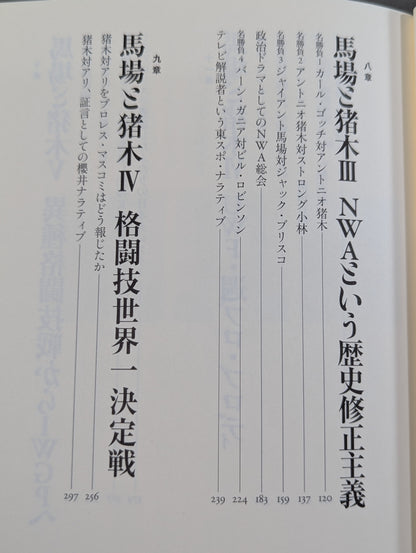 八章
馬場と猪木Ⅲ NWAという歴史修正主義
名勝負1 カール・ゴッチ対アントニオ猪木 120
名勝負2 アントニオ猪木対ストロング小林 137
名勝負3 ジャイアント馬場対ジャック・ブリスコ 159
政治ドラマとしてのNWA総会 183
名勝負4 バーン・ガニア対ビル・ロビンソン 224
テレビ解説者という東スポ・ナラティブ 239
九章
馬場と猪木Ⅳ 格闘技世界一決定戦
猪木対アリをプロレス・マスコミはどう報じたか 256
猪木対アリ、証言としての櫻井ナラティブ 297